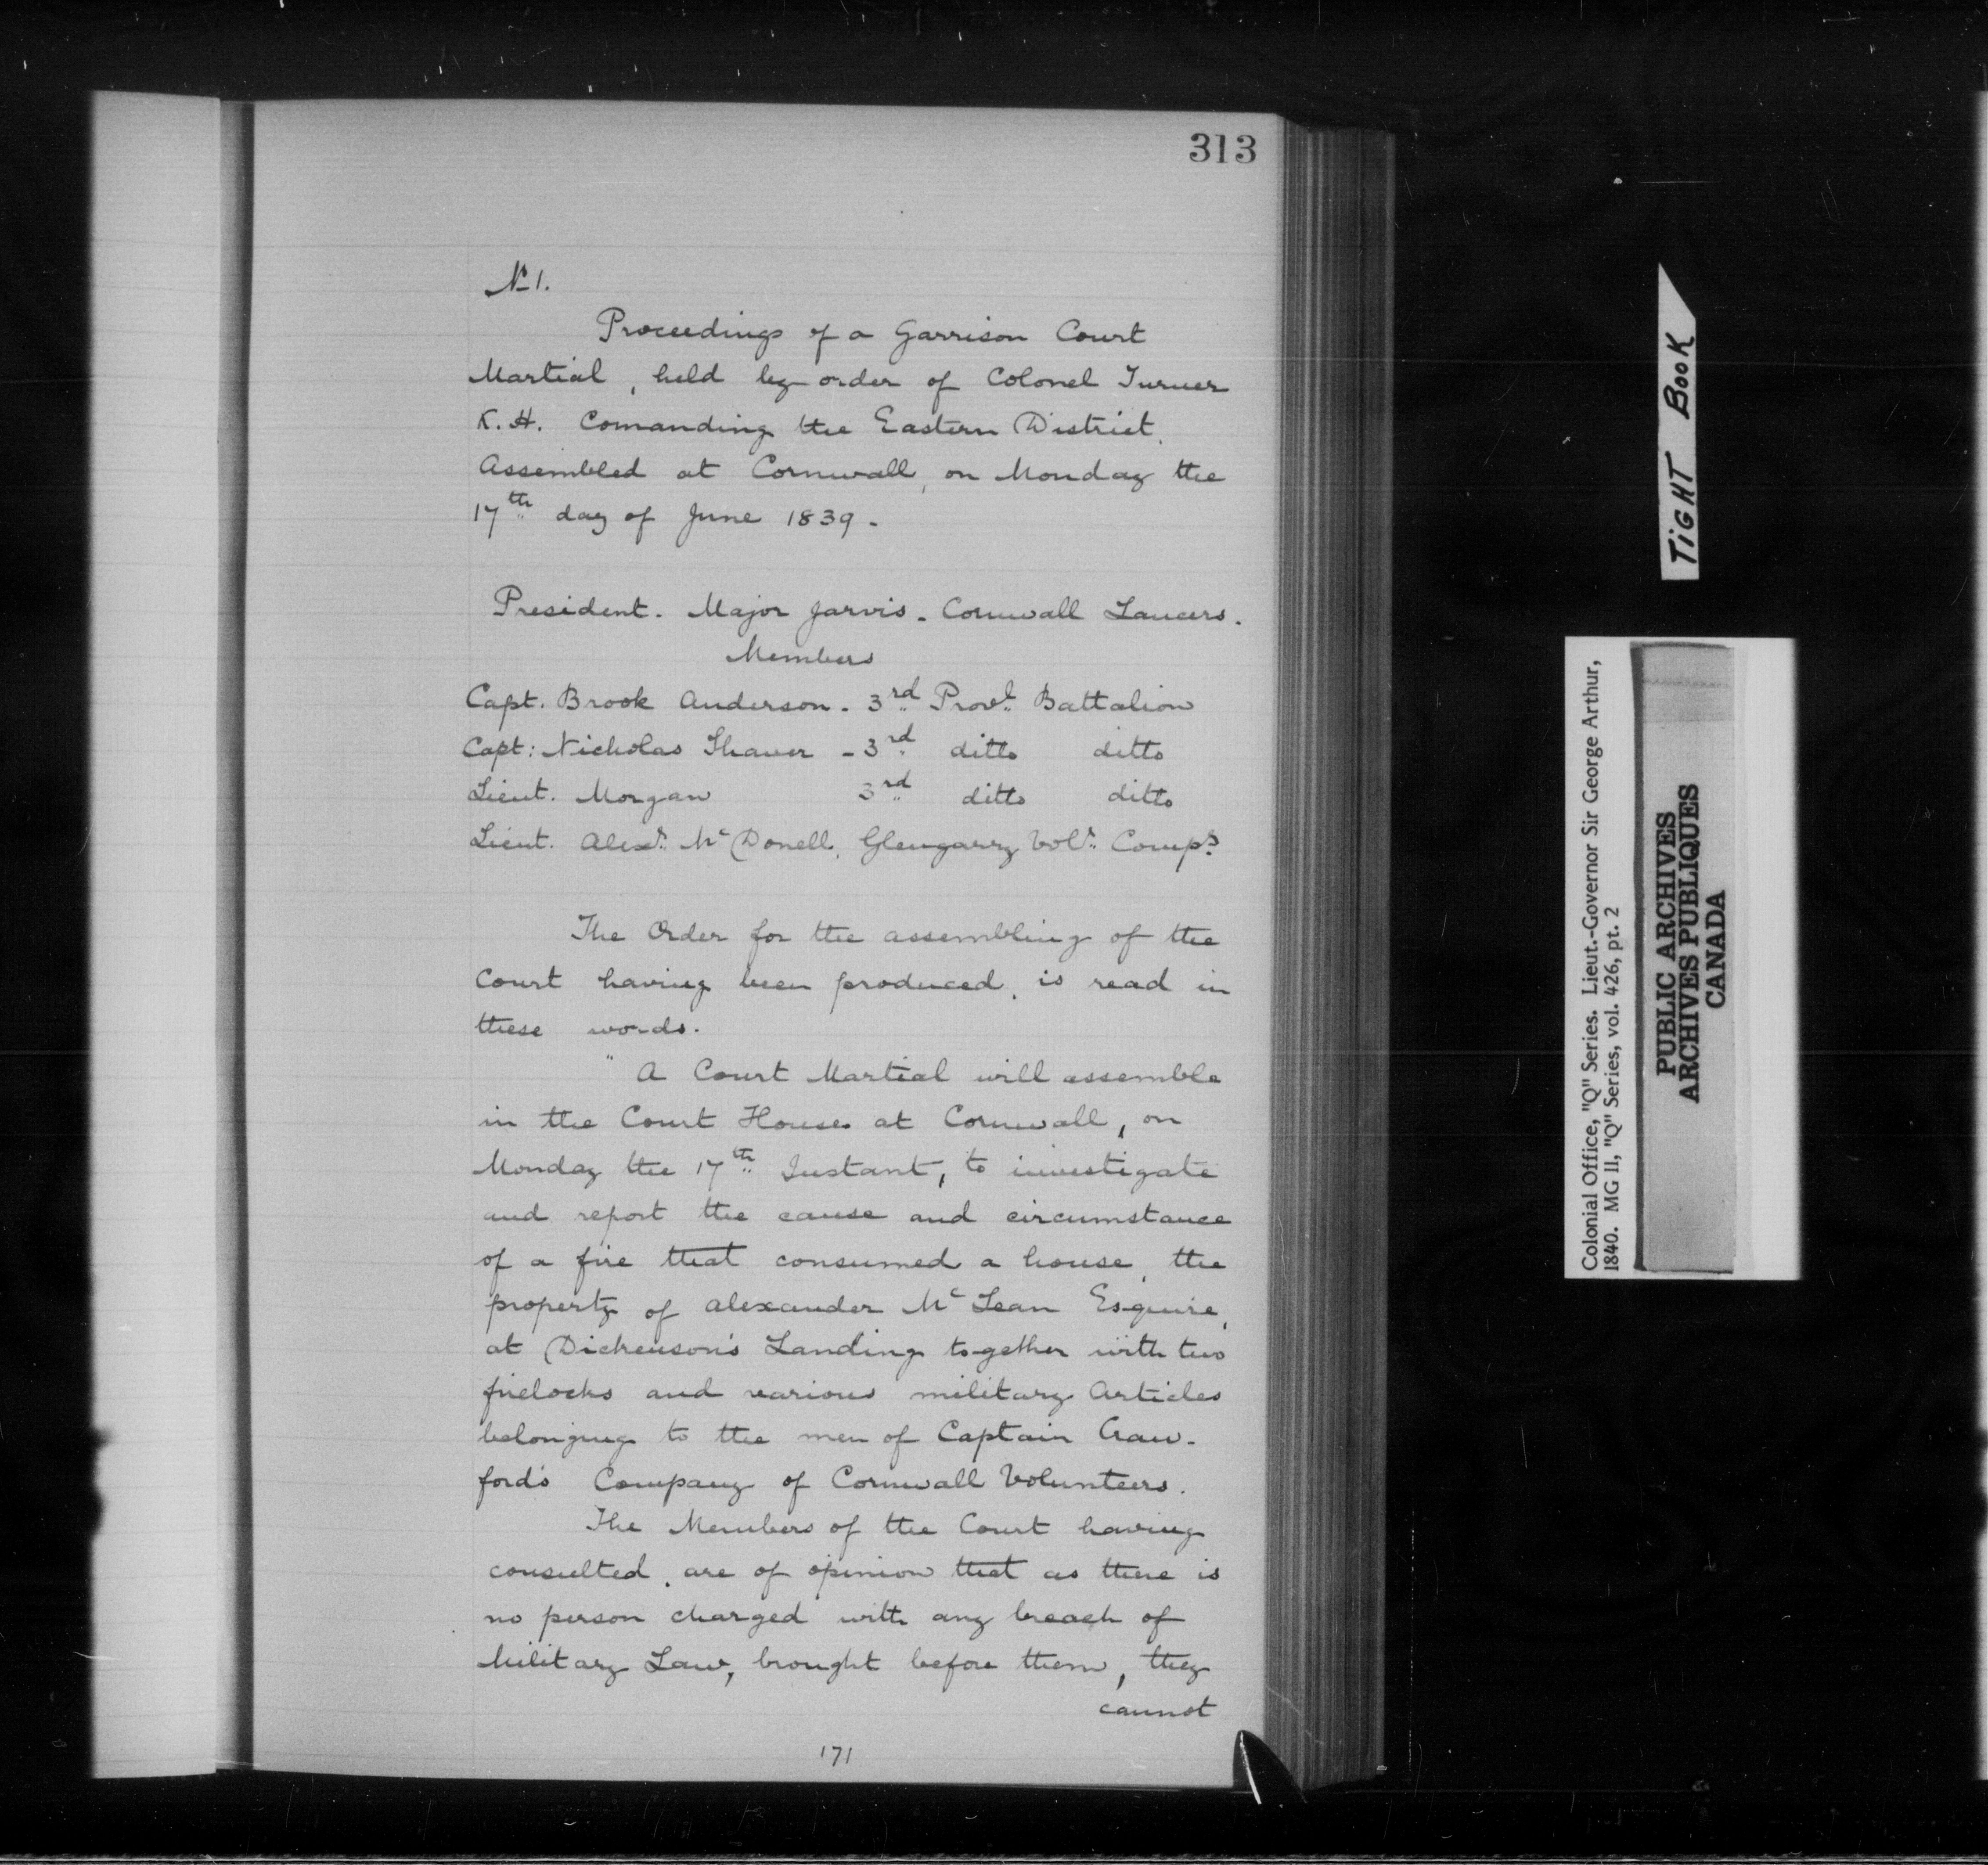 313
No 1.
Proceedings of a Garrison Court
Martial, held by order of Colonel Turner
K.H. Comanding the Eastern District.
Assembled at Cornwall, on Monday the
17th day of June 1839.
President. Major Jarvis. Cornwall Lancers.
Members
Capt. Brook Anderson. 3rd Provl. Battalion
Capt: Nicholas Shaver - 3rd ditto ditto
Lieut. Morgan 3rd ditto ditto
Lieut. Alexr. McDonell, Glengarry Volr. Comps.
The Order for the assembling of the
Court having been produced, is read in
these words.
" A Court Martial will assemble
in the Court House at Cornwall, on
Monday the 17th Instant, to investigate
and report the cause and circumstance
of a fire that consumed a house, the
property of Alexander McLean Esquire,
at Dickenson's Landing together with two
firelocks and various military Articles
belonging to the men of Captain Craw-
ford's Company of Cornwall Volunteers.
The Members of the Court having
consulted, are of opinion that as there is
no person charged with any breach of
Military Law, brought before them, they
cannot
171
TIGHT BOOK
Colonial Office, "Q" Series. Lieut.-Governor Sir George Arthur,
1840. MG II, "Q" Series, vol. 426, pt. 2
PUBLIC ARCHIVES
ARCHIVES PUBLIQUES
CANADA